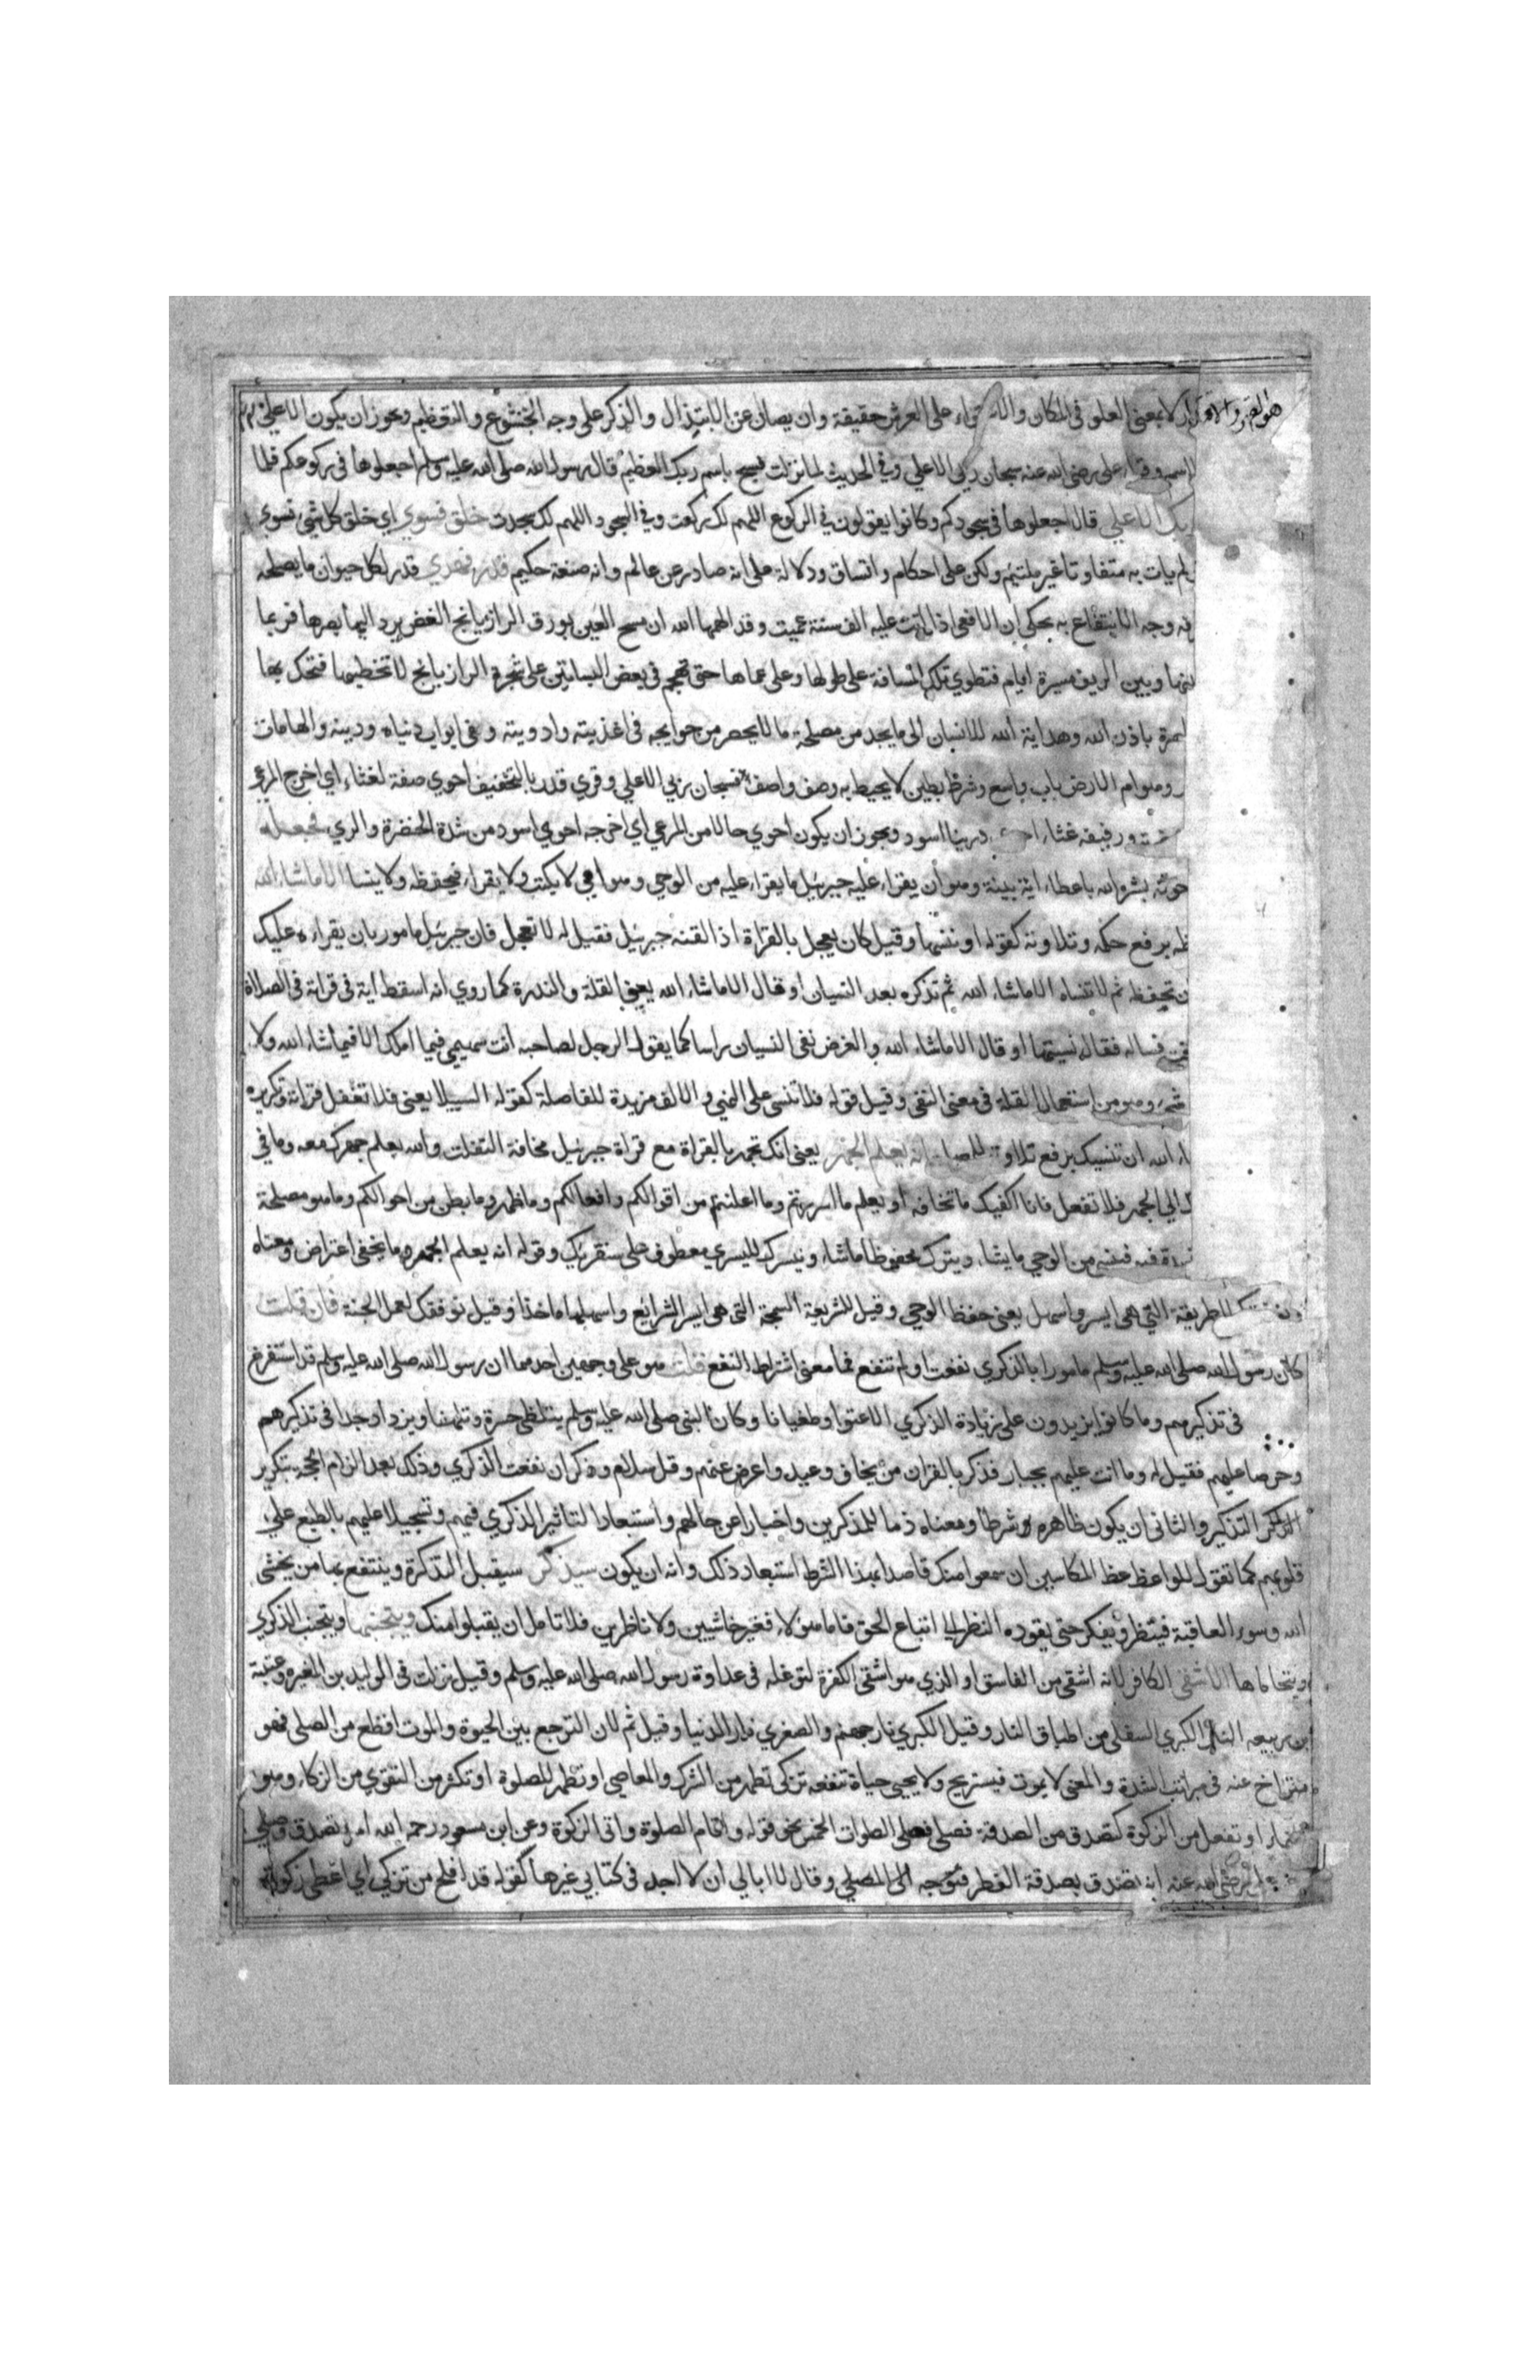 هو القهر والاقتدار لا بمعنى العلو فى المكان والاستواء على العرش حقيقة وان يصان عن الابتذال والذكر على وجه الخشوع والتعظيم ويجوز ان يكون الاعلى
الاسم وقراء على رضى الله عنه سبحان ربى الاعلى وفى الحديث لما نزلت فسبح باسم ربك العظيم قال رسول الله صلى الله عليه وسلم اجعلوها فى ركوعكم فلما
ربك الاعلى قال اجعلوها فى سجودكم وكانوا يقولون فى الركوع اللهم لك ركعت وفى السجود اللهم لك سجدت خلق فسوي اي خلق كل شى فسوي
لم يات به متفاوتا غير ملتئم ولكن على احكام واتساق ودلالة على انه صادر عن عالم وانه صنعة حكيم قدر فهدي قدر لكل حيوان ما يصلحه
فه وجه الانتفاع به يحكى ان الافعى اذا اتت عليه الف سنة عميت وقد الهمها الله ان مسح العين بورق الرازيانج الغض يرد اليها بصرها فربما
بينها وبين الريف مسيرة ايام فتطوي تلك المسافة على طولها وعلى عماها حتى تهجم فى بعض البساتين على شجرة الرازيانج لا تخطيها فتحك بها
باذن الله وهداية الله للانسان الى ما يجد من مصلحة ما لا يحصر من حوايجه فى اغذيته وادويته وفى ابواب دنياه ودينه والهامات
وهوام الارض باب واسع وشرط بطين لا يحيط به وصف واصف فسبحان ربى الاعلى وقري قدر بالتخفيف احوي صفة لغثاء اي اخرج المرعى
ورفيفه غثاء احوى درينا اسود ويجوز ان يكون احوي حالا من المرعى اي اخرجه احوي اسود من شدة الخضرة والري فجعله
حوته بشره الله باعطاء اية بينة وهو ان يقراء عليه جبرئيل ما يقراء عليه من الوحى وهو امى لا يكتب ولا يقراء فيحفظه ولا ينسا الا ما شاء الله
به برفع حكمه وتلاوته كقوله او ننسها وقيل كان يعجل بالقراة اذا لقنه جبرئيل فقيل له لا تعجل فان جبرئيل مامور بان يقراءه عليك
ن تحفظه ثم لا تنساه الا ما شاء الله ثم تذكره بعد النسيان او قال الا ما شاء الله يعنى القلة والندرة كما روي انه اسقط اية فى قراته فى الصلاة
فساله فقال نسيتها او قال الا ما شاء الله والغرض نفى النسيان راسا كما يقول الرجل لصاحبه انت سهيمى فيما املك الا فيما شاء الله ولا
وهو من استعمال القلة فى معنى النفى وقيل قوله فلا تنسى على النهى والالف مزيدة للفاصلة كقوله السبيلا يعنى فلا تغفل قراته وتكريره
اء الله ان تنسيك برفع تلاوته للمصلحة انه يعلم الجهر يعنى انك تجهر بالقراة مع قراة جبرئيل مخافة التفلت والله يعلم جهرك معه وما فى
ك الى الجهر فلا تفعل فانا اكفيك ما تخافه او يعلم ما اسررتم وما اعلنتم من اقوالكم وافعالكم وما ظهر وما بطن من احوالكم وما هو مصلحة
فيه فينسى من الوحى ما يشاء ويترك محفوظا ما شاء ونيسرك لليسري معطوف على سنقريك وقوله انه يعلم الجهر وما يخفى اعتراض ومعناه
ونوفقك للطريقة التى هى ايسر واسهل يعنى حفظ الوحى وقيل للشريعة السمحة التى هى ايسر الشرائع واسهلها ماخذا وقيل نوفقك لعمل الجنة فان قلت
كان رسول الله صلى الله عليه وسلم مامورا بالذكري نفعت او لم تنفع فما معنى اشتراط النفع قلت هو على وجهين احدهما ان رسول الله صلى الله عليه وسلم قد استفرغ
فى تذكيرهم وما كانوا يزيدون على زيادة الذكري الا عتوا وطغيانا وكان النبى صلى الله عليه وسلم يتلظى حسرة وتلهفا ويزداد جدا فى تذكيرهم
وحرصا عليهم فقيل له وما انت عليهم بجبار فذكر بالقران من يخاف وعيد واعرض عنهم وقل سلام وذكر ان نفعت الذكري وذلك بعد الزام الحجة بتكرير
التذكير والثانى ان يكون ظاهره شرطا ومعناه ذما للمذكرين واخبارا عن حالهم واستبعادا لتاثير الذكري فيهم وتسجيلا عليهم بالطبع على
قلوبهم كما تقول للواعظ عظ المكاسين ان سمعوا منك قاصدا بهذا الشرط استبعاد ذلك وانه ان يكون سيذكر سيقبل التذكرة وينتفع بها من يخشى
الله وسوء العاقبة فينظر ويفكر حتى يقوده النظر الى اتباع الحق فاما هولاء فغير خاشيين ولا ناظرين فلا تامل ان يقبلوا منك ويتجنبها ويتجنب الذكري
ويتحاماها الاشقى الكافر لانه اشقى من الفاسق او الذي هو اشقى الكفرة لتوغله فى عداوة رسول الله صلى الله عليه وسلم وقيل نزلت فى الوليد بن المغيرة وعتبة
بن ربيعه النار الكبري السفلى من اطباق النار وقيل الكبري نار جهنم والصغري نار الدنيا وقيل ثم لان الترجع بين الحيوة والموت افظع من الصلى فهو
متراخ عنه فى مراتب الشدة والمعنى لا يموت فيستريح ولا يحيى حياة تنفعه تزكى تطهر من الشرك والمعاصى او تطهر للصلوة او تكثر من التقوي من الزكاء وهو
النماء او تفعل من الزكوة كتصدق من الصدقة فصلى فصلى الصلوات الخمس نحو قوله واقام الصلوة واتى الزكوة وعن ابن مسعود رحم الله امرء تصدق وصلى
على رضى الله عنه انه تصدق بصدقة الفطر فتوجه الى المصلى وقال لا ابالى ان لا اجد فى كتابى غيرها كقوله قد افلح من تزكى اي اعطى زكوة